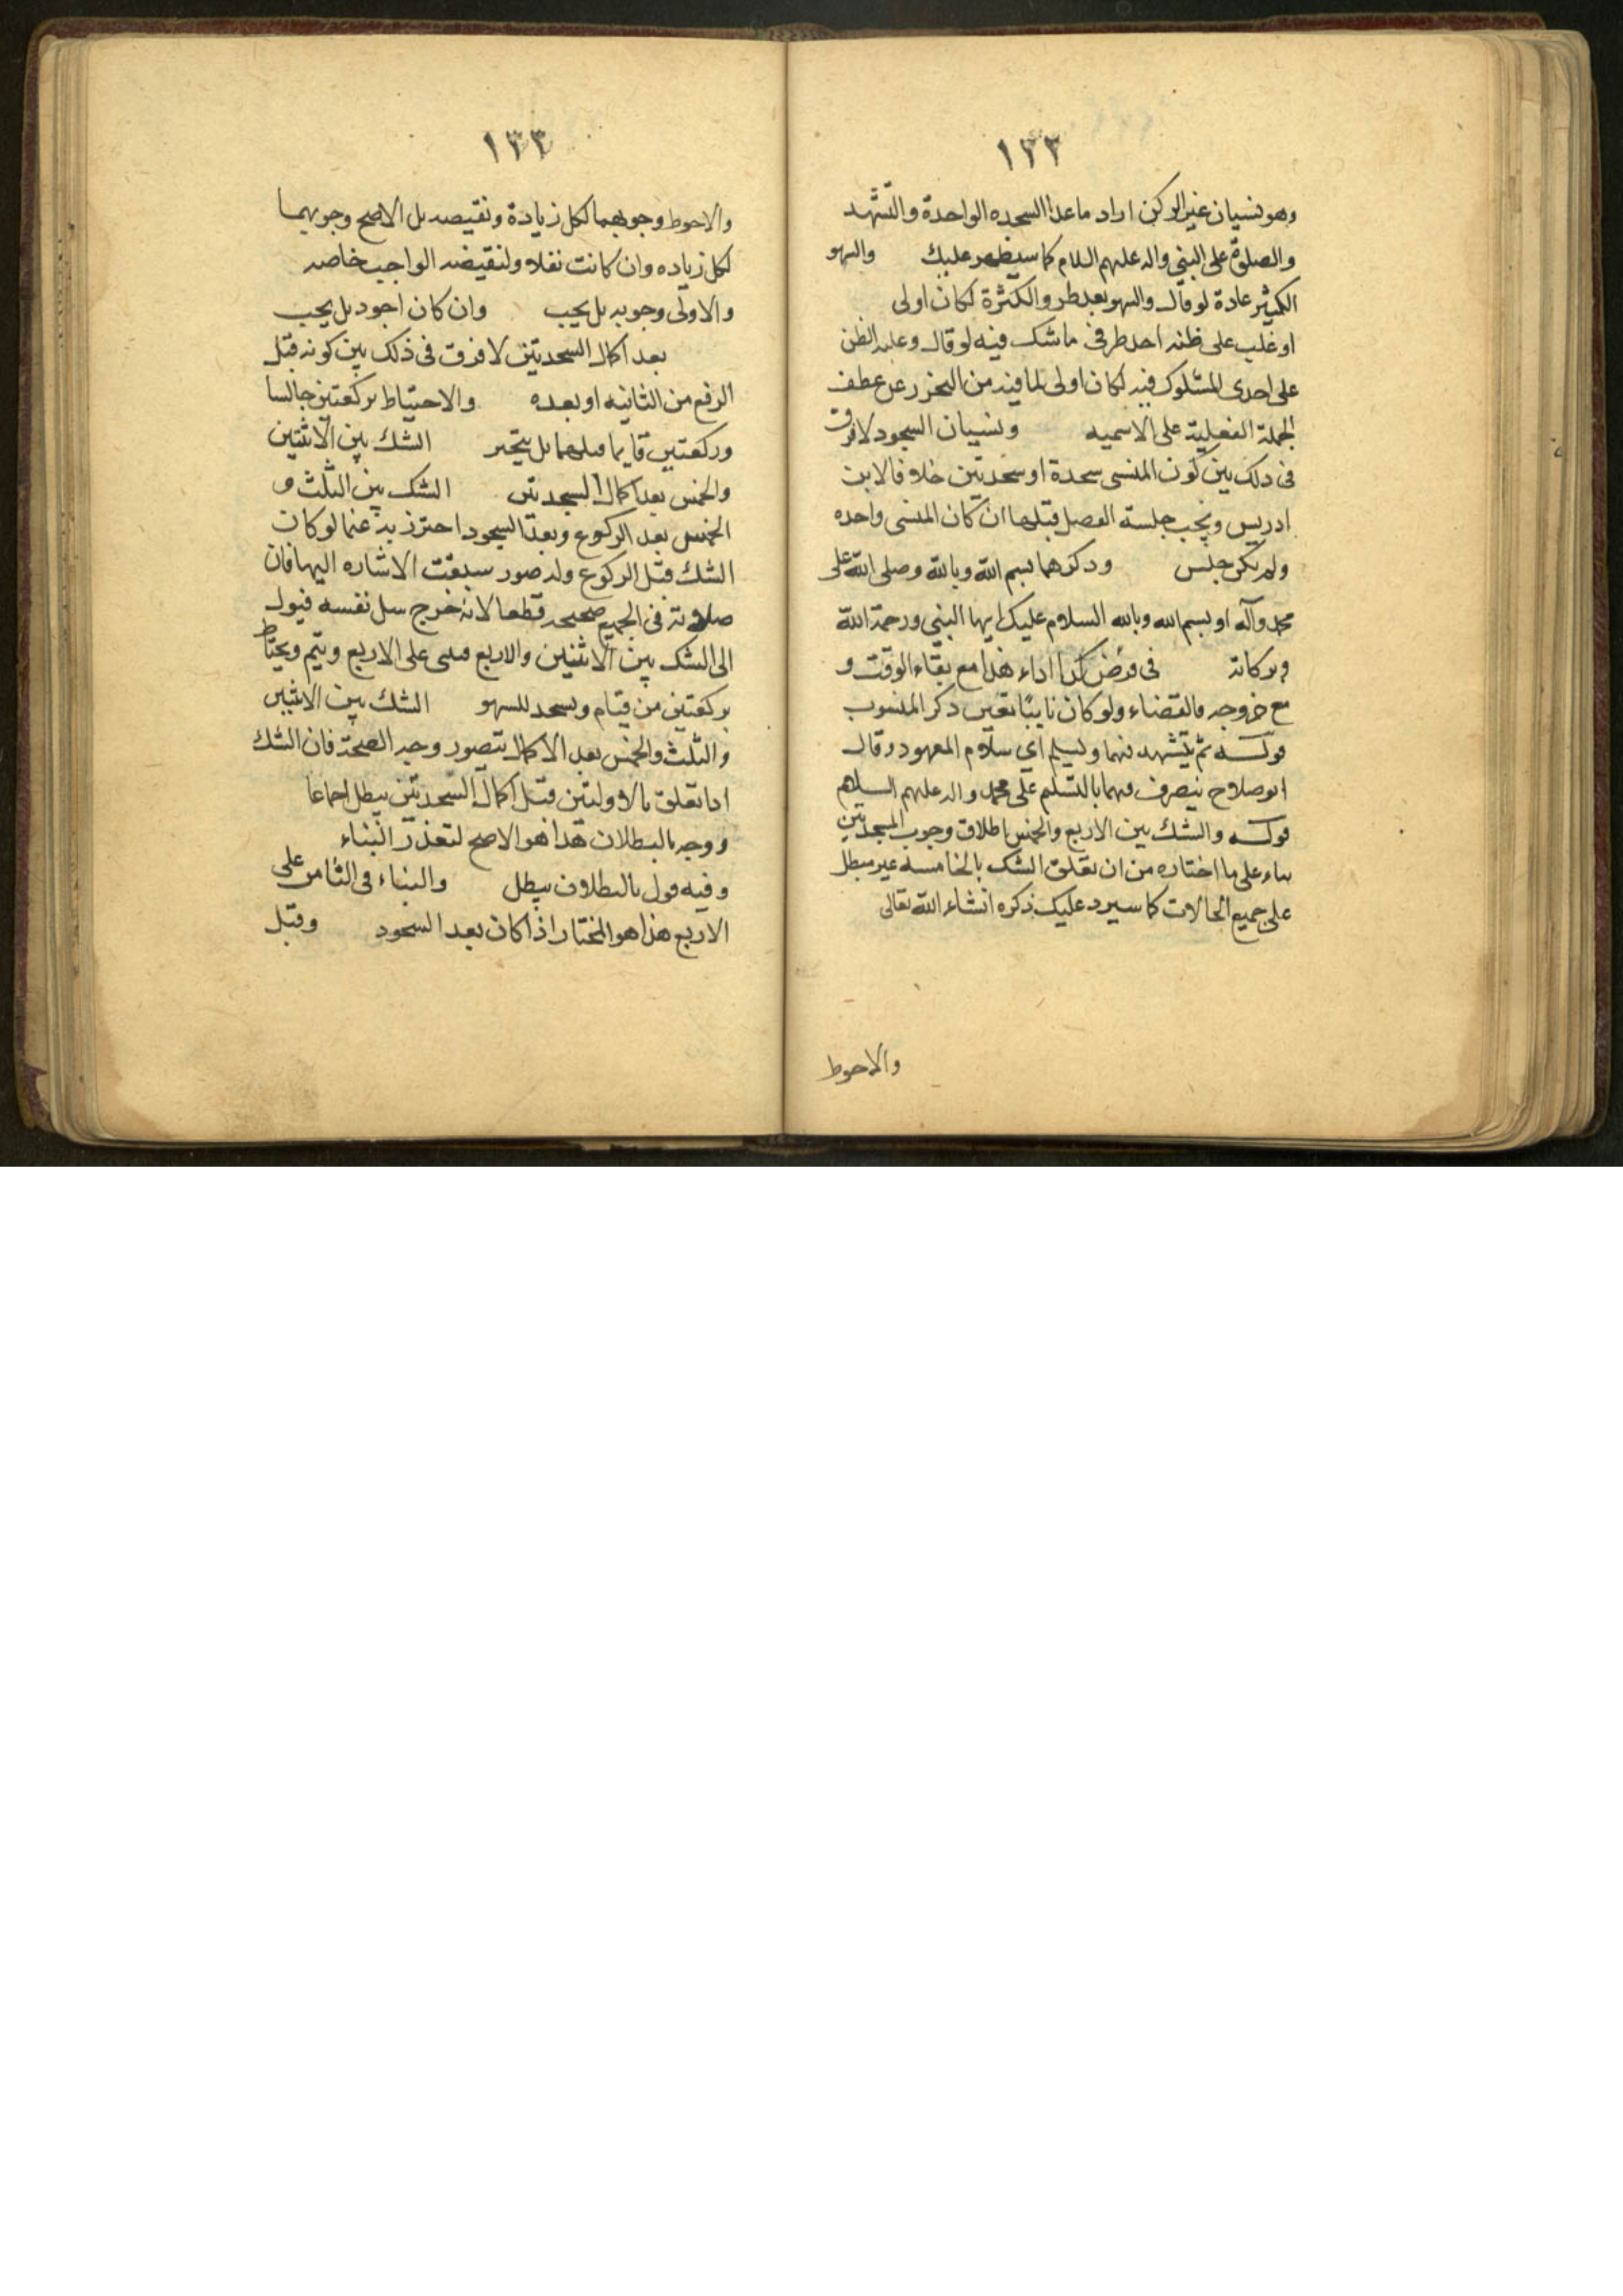 ١٢٢
وهو نسيان غير الركن اراد ما عدا السجده الواحدة والتشهد
والصلوة على النبي واله عليهم السلام كما سيظهر عليك والسهو
الكثير عادة لو قال والسهو بعد والكثرة لكان اولى
او غلب على ظنه احد طرفى ما شك فيه لو قال وغلبه الظن
على احدى المشكوك فيه لكان اولى لما فيه من التحزر عن عطف
الجملة الفعلية على الاسميه ونسيان السجود لا فرق
فى ذلك بين كون المنسى سجدة او سجدتين خلافا لابن
ادريس ويجب جلسة الفصل قبلها ان كان المنسى واحده
ولم يكن جلس وذكرهما بسم الله وبالله وصلى الله على
محمد وآله او بسم الله وبالله السلام عليك ايها النبي ورحمة الله
وبركاته فى فرض كذا اداء هذا مع بقاء الوقت و
مع خروجه فالقضاء ولو كان نايبا تعين ذكر المنسوب
قوله ثم يتشهد فيهما ويسلم اى سلام المعهود وقال
ابو صلاح ينصرف منهما بالتسلم على محمد واله عليهم السلام
قوله والشك بين الاربع والخمس اطلاق وجوب السجدتين
بناء على ما اختاره من ان تعلق الشك بالخامسه غير مبطل
على جميع الحالات كما سيرد عليك ذكره انشاء الله تعالى
والاحوط
١٢٣
والاحوط وجوبهما لكل زيادة ونقيصه بل الاصح وجوبهما
لكل زياده وان كانت نفلا ولنقيضه الواجب خاصه
والاولى وجوبه بل يجب وان كان اجود بل يجب
بعد اكمال السجدتين لا فرق فى ذلك بين كونه قبل
الرفع من الثانيه او بعده والاحتياط بركعتين جالسا
وركعتين قايما قبلهما بل يتخير الشك بين الاثنتين
والخمس بعد اكمال السجدتين الشك بين الثلث و
الخمس بعد الركوع وبعد السجود احترز به عما لو كان
الشك قبل الركوع وله صور سبقت الاشاره اليها فان
صلاته فى الجميع صحيحه قطعا لانه خرج نفسه فيول
الى الشك بين الاثنين والاربع فيبنى على الاربع ويتم ويحتاط
بركعتين من قيام ويسجد للسهو الشك بين الاثنين
والثلث والخمس بعد الاكمال يتصور وجه الصحة فان الشك
اذا تعلق بالاوليتين قبل اكمال السجدتين يبطل اجماعا
ووجه بالبطلان هذا هو الاصح لتعذر البناء
وفيه قول بالبطلان يبطل والبناء فى الثامن على
الاربع هذا هو المختار اذا كان بعد السجود وقبل